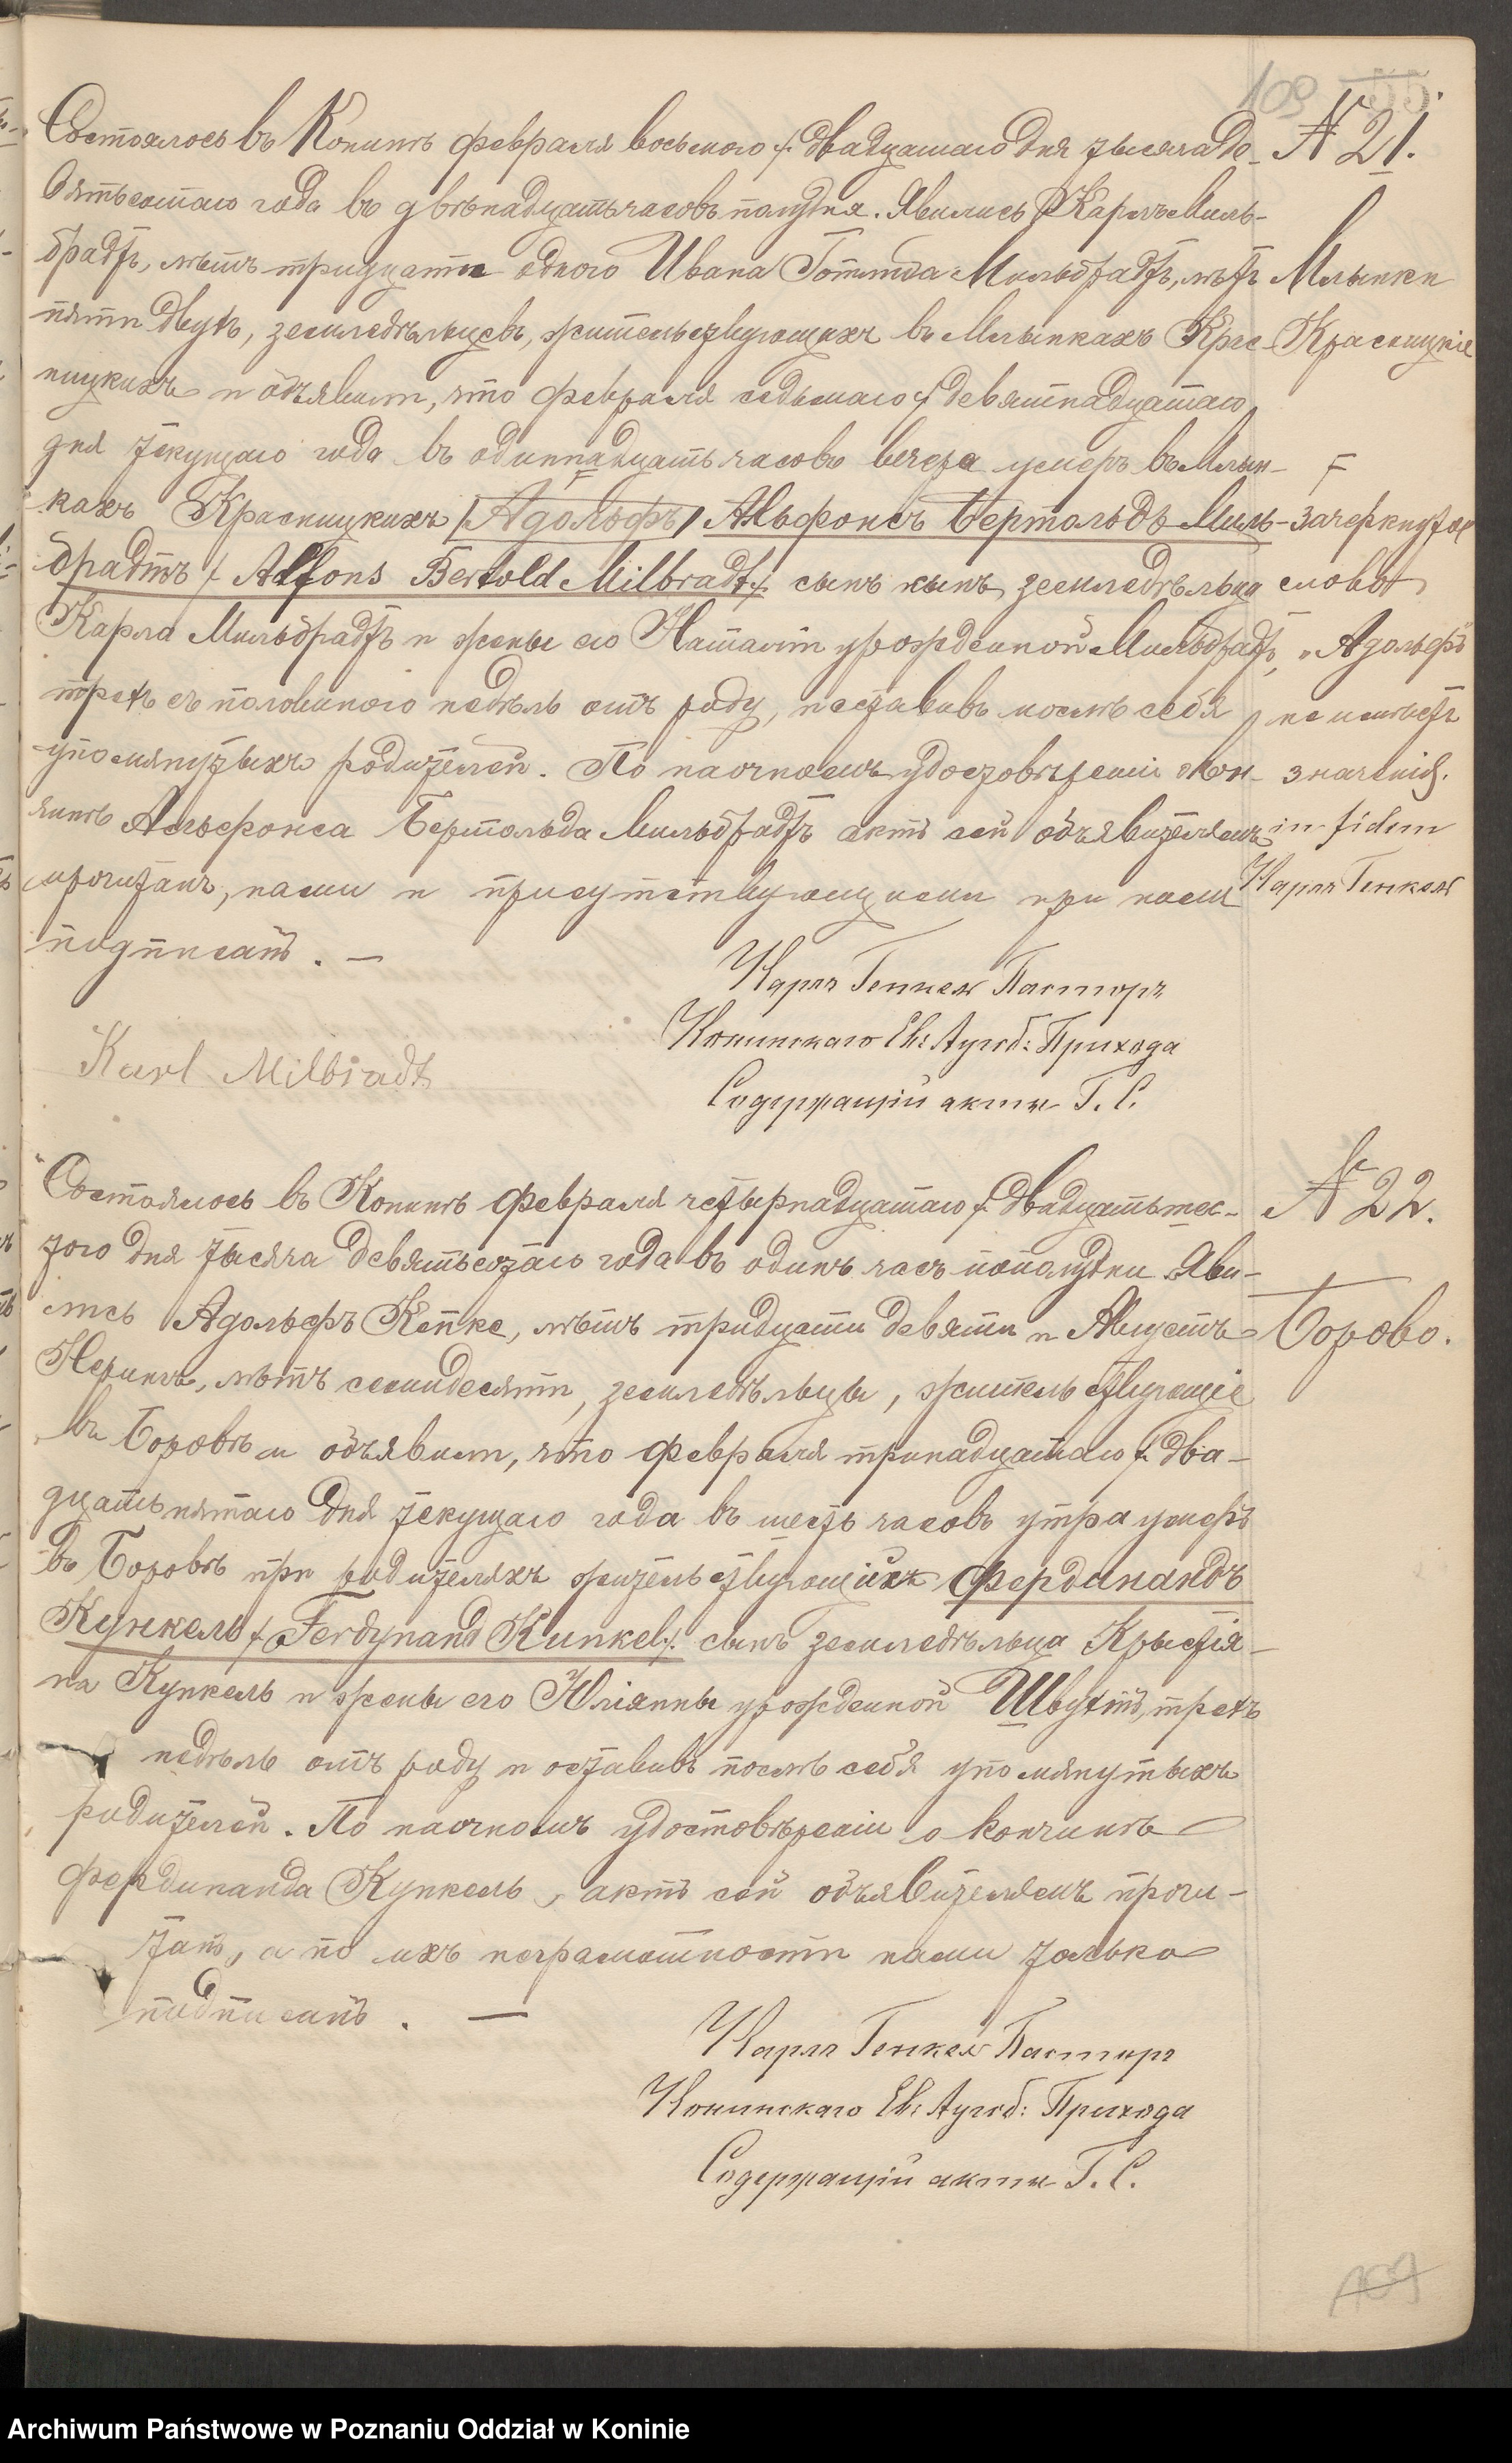 109 55.
№ 21.
Состоялось въ Конинѣ февраля восьмого /: двадцатаго дня тысяча де-
вятьсотаго года въ двѣнадцать часовъ полудня. Явились Карлъ Миль-
брадтъ, лѣтъ тридцати одного Ивана Готлиба Мильбрадтъ, лѣтъ
Млынки
пяти двухъ, земледѣльцевъ, жительствующихъ въ Млынкахъ Крас-
Красницкіе
ницкихъ и объявили, что февраля седьмаго /: девятнадцатаго
дня текущаго года въ одиннадцать часовъ вечера умеръ въ Млын-
кахъ Красницкихъ /Адольфъ/ Альфонсъ Бертольдъ Миль-
брадтъ /: Alfons Bertold Milbradt :/ сынъ нынѣ земледѣльца
Карла Мильбрадтъ и жены его Наталіи урожденной Мильбрадтъ,
трехъ съ половиною недѣль отъ роду, оставивъ послѣ себя
упомянутыхъ родителей. По наочномъ удостовѣреніи о кон-
чинѣ Альфонса Бертольда Мильбрадтъ актъ сей объявителямъ
прочитанъ, нами и присутствующими при немъ
подписанъ. —
F
зачеркнутое
слово
„Адольфъ"
не имѣетъ
значенія.
in fidem
Карлъ Генкель
Карлъ Генкель Пасторъ
Конинскаго Ев: Аугсб: Прихода
Содержащій акты Г. С.
Karl Milbradt
№ 22.
Состоялось въ Конинѣ февраля четырнадцатаго /: двадцать шес-
того дня тысяча девятьсотаго года въ одинъ часъ пополудни. Яви-
лись Адольфъ Кепке, лѣтъ тридцати девяти и Августъ
Борово.
Нерингъ, лѣтъ семидесяти, земледѣльцы, жительствующіе
въ Боровѣ и объявили, что февраля тринадцатаго /: два-
дцать пятаго дня текущаго года въ шесть часовъ утра умеръ
въ Боровѣ при родителяхъ жительствующихъ Фердинандъ
Кункель /: Ferdynand Kunkel :/ сынъ земледѣльца Крыстіа-
на Кункель и жены его Юліянны урожденной Швухтъ, трехъ
недѣль отъ роду и оставивъ послѣ себя упомянутыхъ
родителей. По наочномъ удостовѣреніи о кончинѣ
Фердинанда Кункель, актъ сей объявителямъ прочи-
танъ, а по ихъ неграмотности нами только
подписанъ. —
Карлъ Генкель Пасторъ
Конинскаго Ев: Аугсб: Прихода
Содержащій акты Г. С.
109
Archiwum Państwowe w Poznaniu Oddział w Koninie